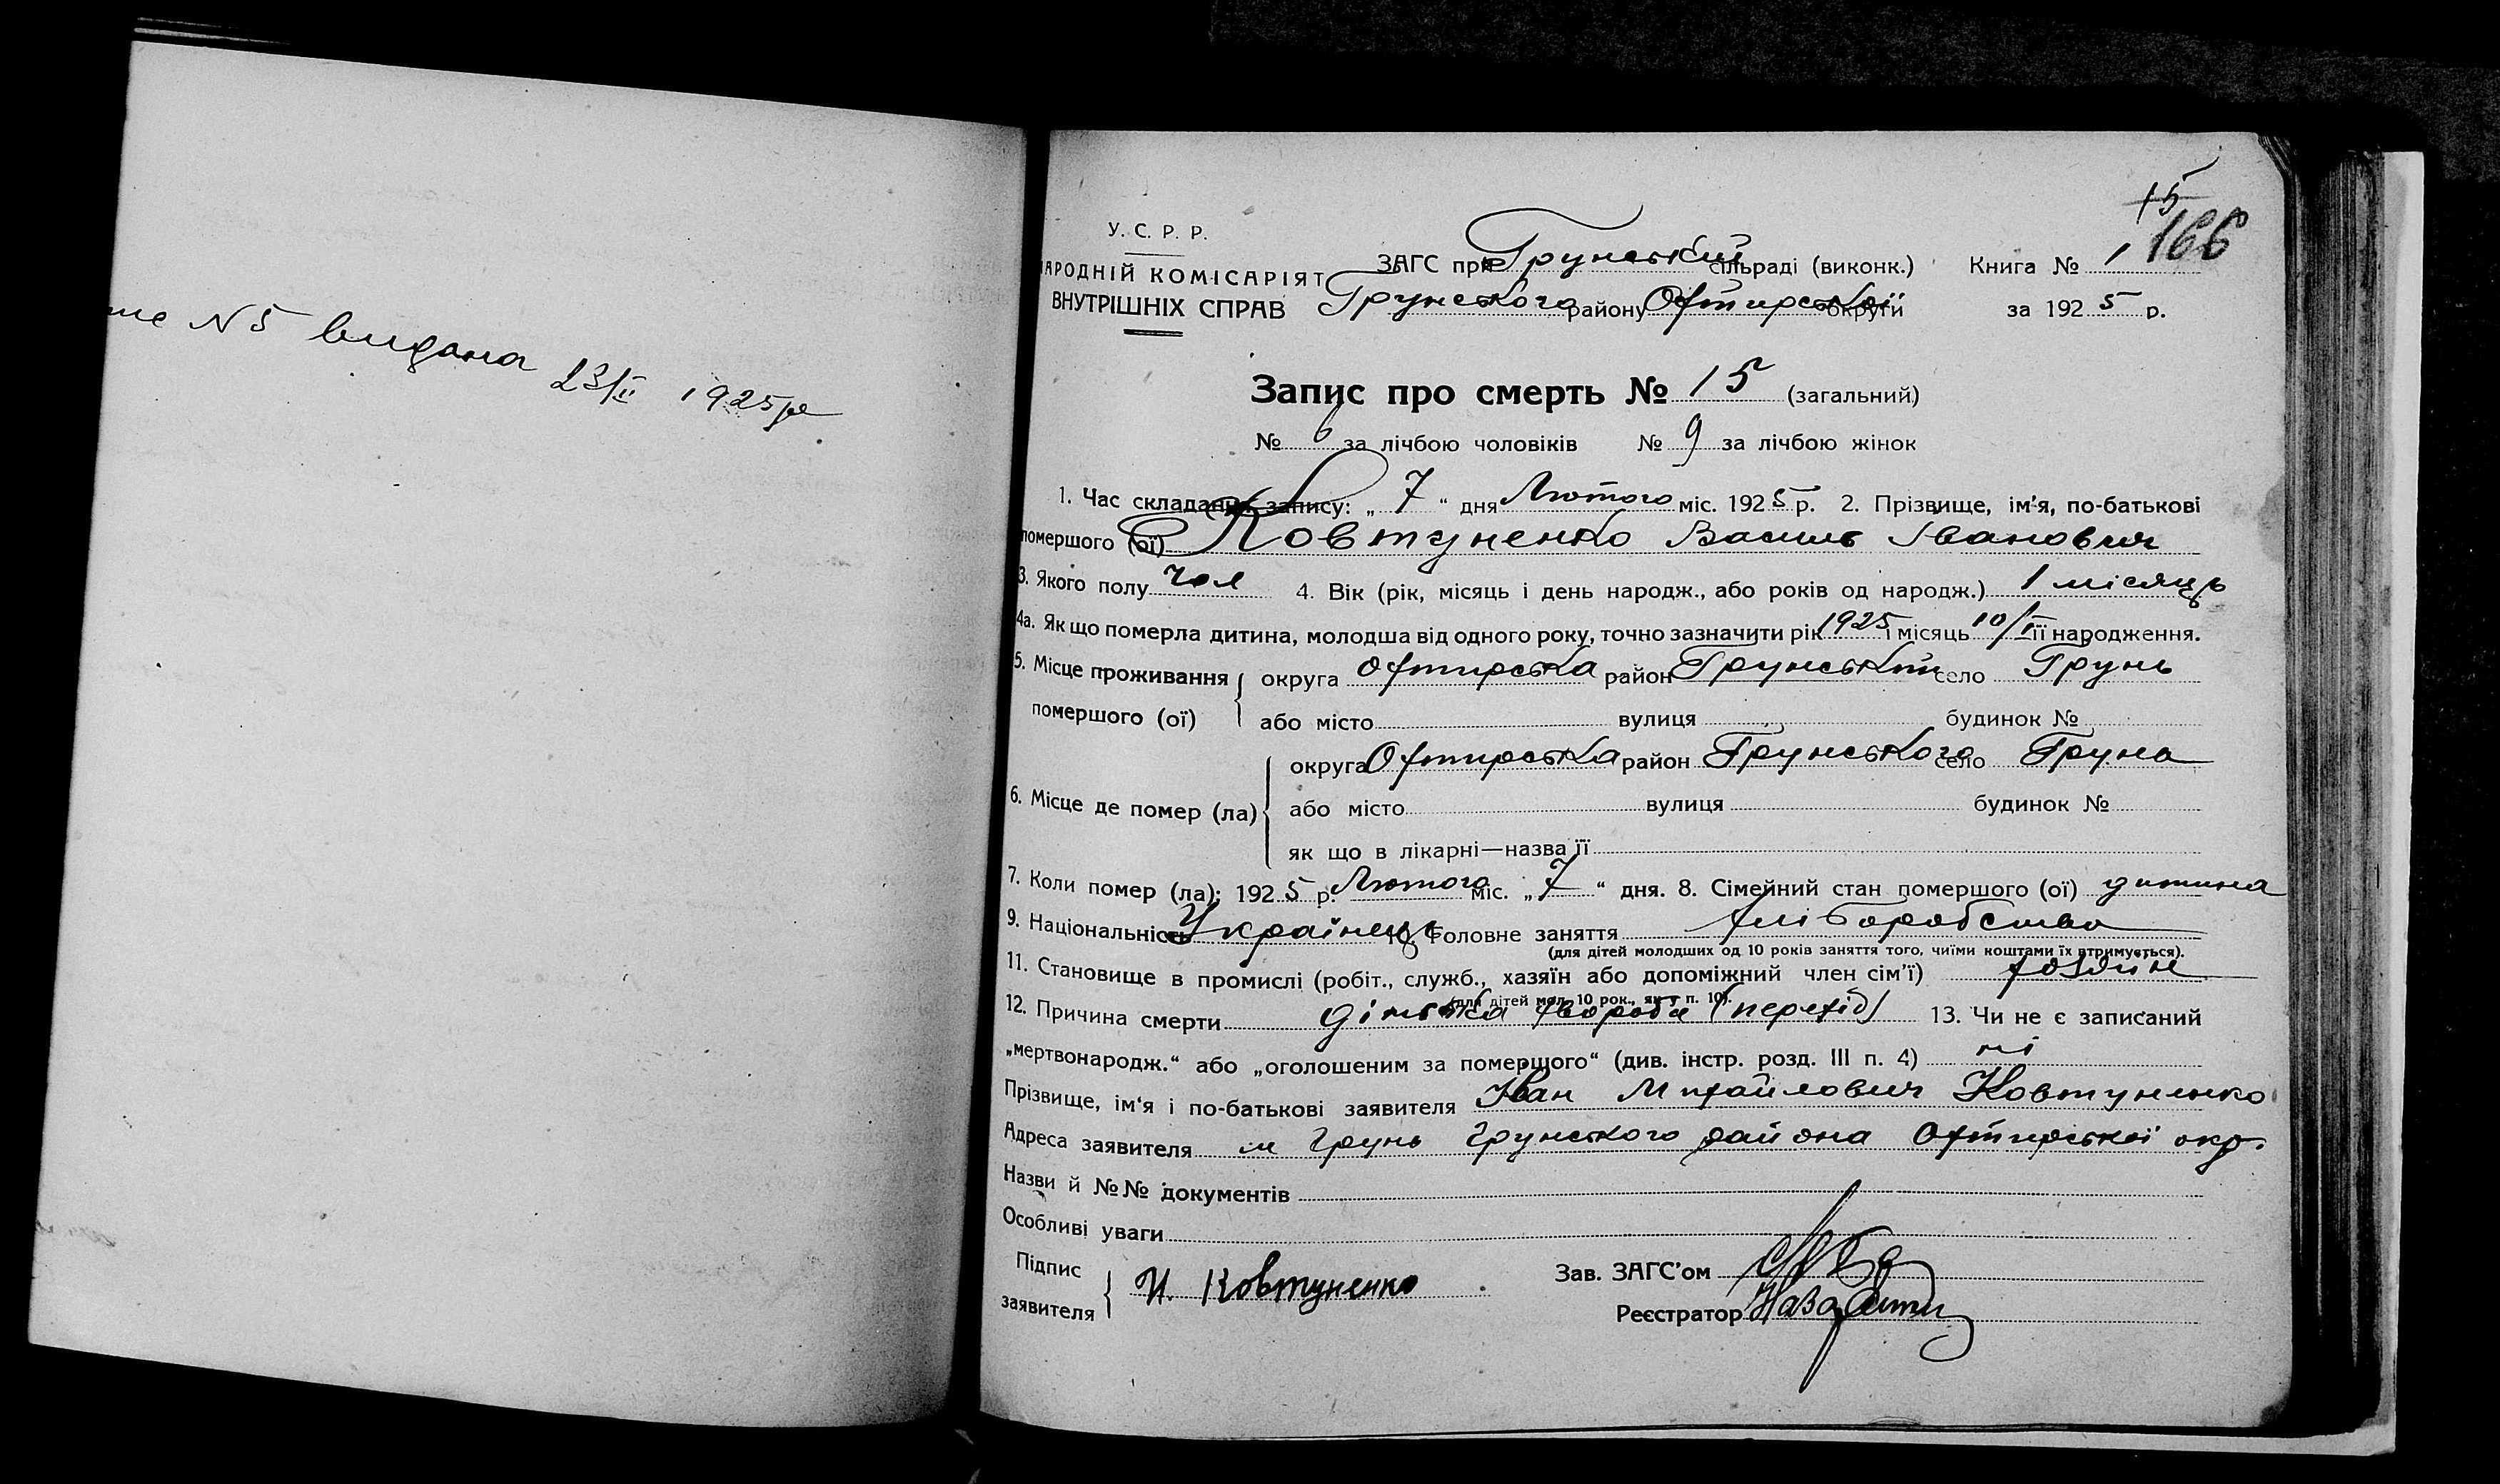 № 5 видана
23/II 1925 р
15
166
У. С. Р. Р.
НАРОДНІЙ КОМІСАРІЯТ
ВНУТРІШНІХ СПРАВ
ЗАГС при Грунський сільраді (виконк.) Книга № 1
Грунського району Охтирської округи за 1925 р.
Запис про смерть № 15 (загальний)
№ 6 за лічбою чоловіків № 9 за лічбою жінок
1. Час складання запису: „ 7 “ дня Лютого міс. 1925 р. 2. Прізвище, ім'я, по-батькові
помершого (ої) Ковтуненко Василь Іванович
3. Якого полу чол 4. Вік (рік, місяць і день народж., або років од народж.) 1 місяць
4а. Як що померла дитина, молодша від одного року, точно зазначити рік 1925 і місяць 10/I її народження.
5. Місце проживання помершого (ої) округа Охтирська район Грунський село Грунь
або місто вулиця будинок №
6. Місце де помер (ла) округа Охтирська район Грунського село Грунь
або місто вулиця будинок №
як що в лікарні—назва її
7. Коли помер (ла): 1925 р. Лютого міс. „ 7 “ дня. 8. Сімейний стан помершого (ої) дитина
9. Національність Українець 10. Головне заняття хліборобство
(для дітей молодших од 10 років заняття того, чиїми коштами їх втримується).
11. Становище в промислі (робіт., служб., хазяїн або допоміжний член сім'ї) хозяин
(для дітей мол. 10 рок., як у п. 10).
12. Причина смерти дітська хвороба (перехід) 13. Чи не є записаний
„мертвонародж.“ або „оголошеним за помершого“ (див. інстр. розд. III п. 4) ні
Прізвище, ім'я і по-батькові заявителя Іван Михайлович Ковтуненко
Адреса заявителя м Грунь Грунского района Охтирської окр.
Назви й №№ документів
Особливі уваги
Підпис заявителя И. Ковтуненко
Зав. ЗАГС'ом
Реєстратор